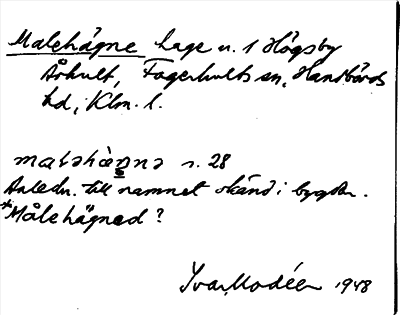 Malehägne hage n. 1 Högsby
Åkult, Fagerhults sn, Handbörds
hd, Klm. l.
matəhàgnə s. 28
Anledn. till namnet okänd i bygden.
*Målehägnad?
Ivar Modéer 1948